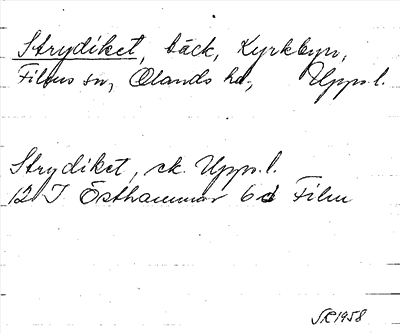 Strydiket, bäck, Kyrkbyn,
Films sn, Olands hd, Uppl.
Strydiket, ek. Uppl.
12 I Östhammar 6d Film
S.R 1958